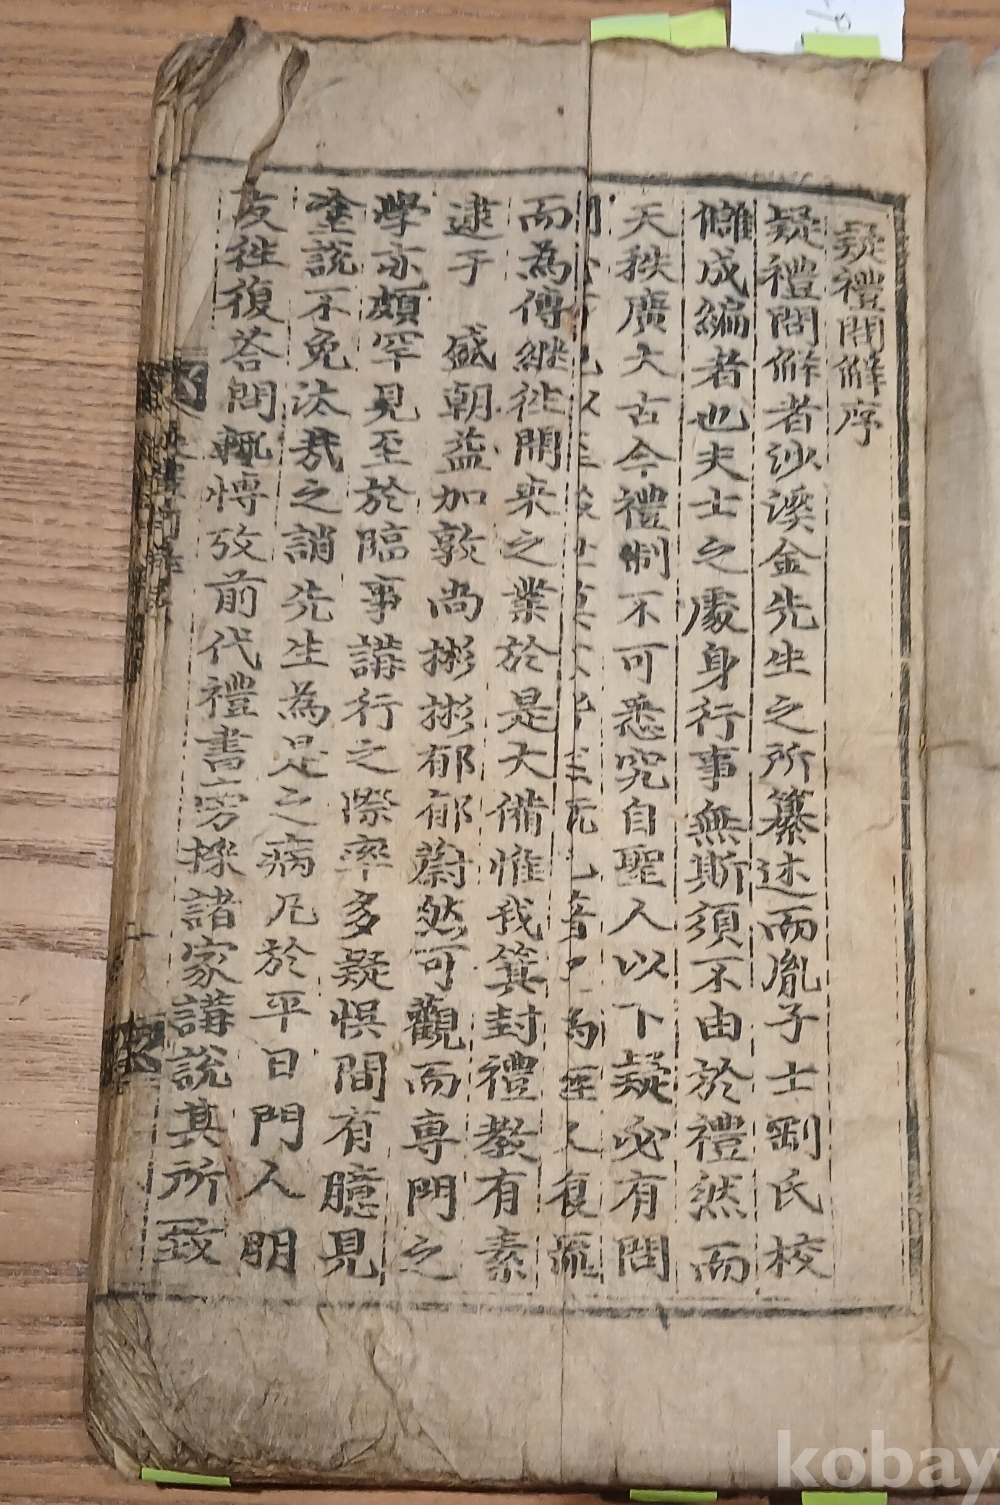 疑禮問解序
疑禮問解者沙溪金先生之所纂述而胤子士剛氏校
讎成編者也夫士之處身行事無斯須不由於禮然而
天秩廣大古今禮制不可悉究自聖人以下疑必有問
復
而為傳継徃開来之業於是大備惟我箕封禮教有素
逮于 盛朝益加敦尚彬彬郁郁蔚然可觀而專門之
學亦頗罕見至於臨事講行之際率多疑悞間有臆見
塗說不免汰哉之誚先生為是之病凡於平日門人朋
友徃復答問輒博攷前代禮書旁採諸家講說其所致
kobay